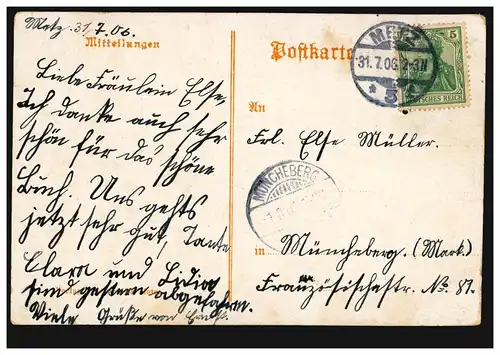 Metz. 31. 7. 06.
Mitteilungen
Liebe Fräulein Else,
Ich danke auch sehr
schön für das schöne
Buch. Uns gehts
jetzt sehr gut, Tante
Clara und Lidia
sind gestern abgefahren.
Viele Grüße von
Postkarte
METZ
31.7.06. 2-3N
* 5
5
DEUTSCHES REICH
An
Frl. Else Müller.
MÜNCHEBERG
in Müncheberg. (Mark.)
Französischestr. No. 87.